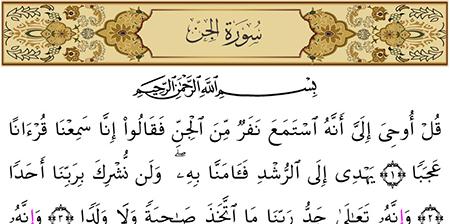 سُورَةُ الجِنِّ
بِسْمِ اللَّهِ الرَّحْمَٰنِ الرَّحِيمِ
قُلْ أُوحِيَ إِلَيَّ أَنَّهُ ٱسْتَمَعَ نَفَرٌ مِّنَ ٱلْجِنِّ فَقَالُوٓا۟ إِنَّا سَمِعْنَا قُرْءَانًا
عَجَبًا ﴿١﴾ يَهْدِىٓ إِلَى ٱلرُّشْدِ فَـَٔامَنَّا بِهِۦ ۖ وَلَن نُّشْرِكَ بِرَبِّنَآ أَحَدًا
﴿٢﴾ وَأَنَّهُۥ تَعَٰلَىٰ جَدُّ رَبِّنَا مَا ٱتَّخَذَ صَٰحِبَةً وَلَا وَلَدًا ﴿٣﴾ وَأَنَّهُۥ